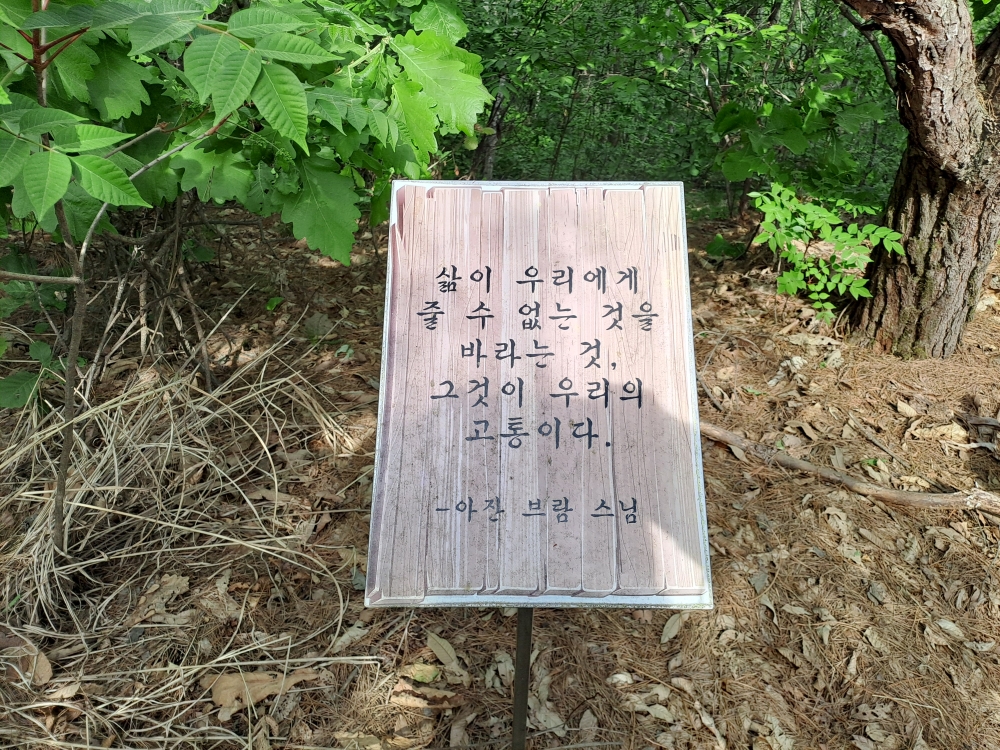 삶이 우리에게
줄 수 없는 것을
바라는 것,
그것이 우리의
고통이다.
-아잔 브람 스님